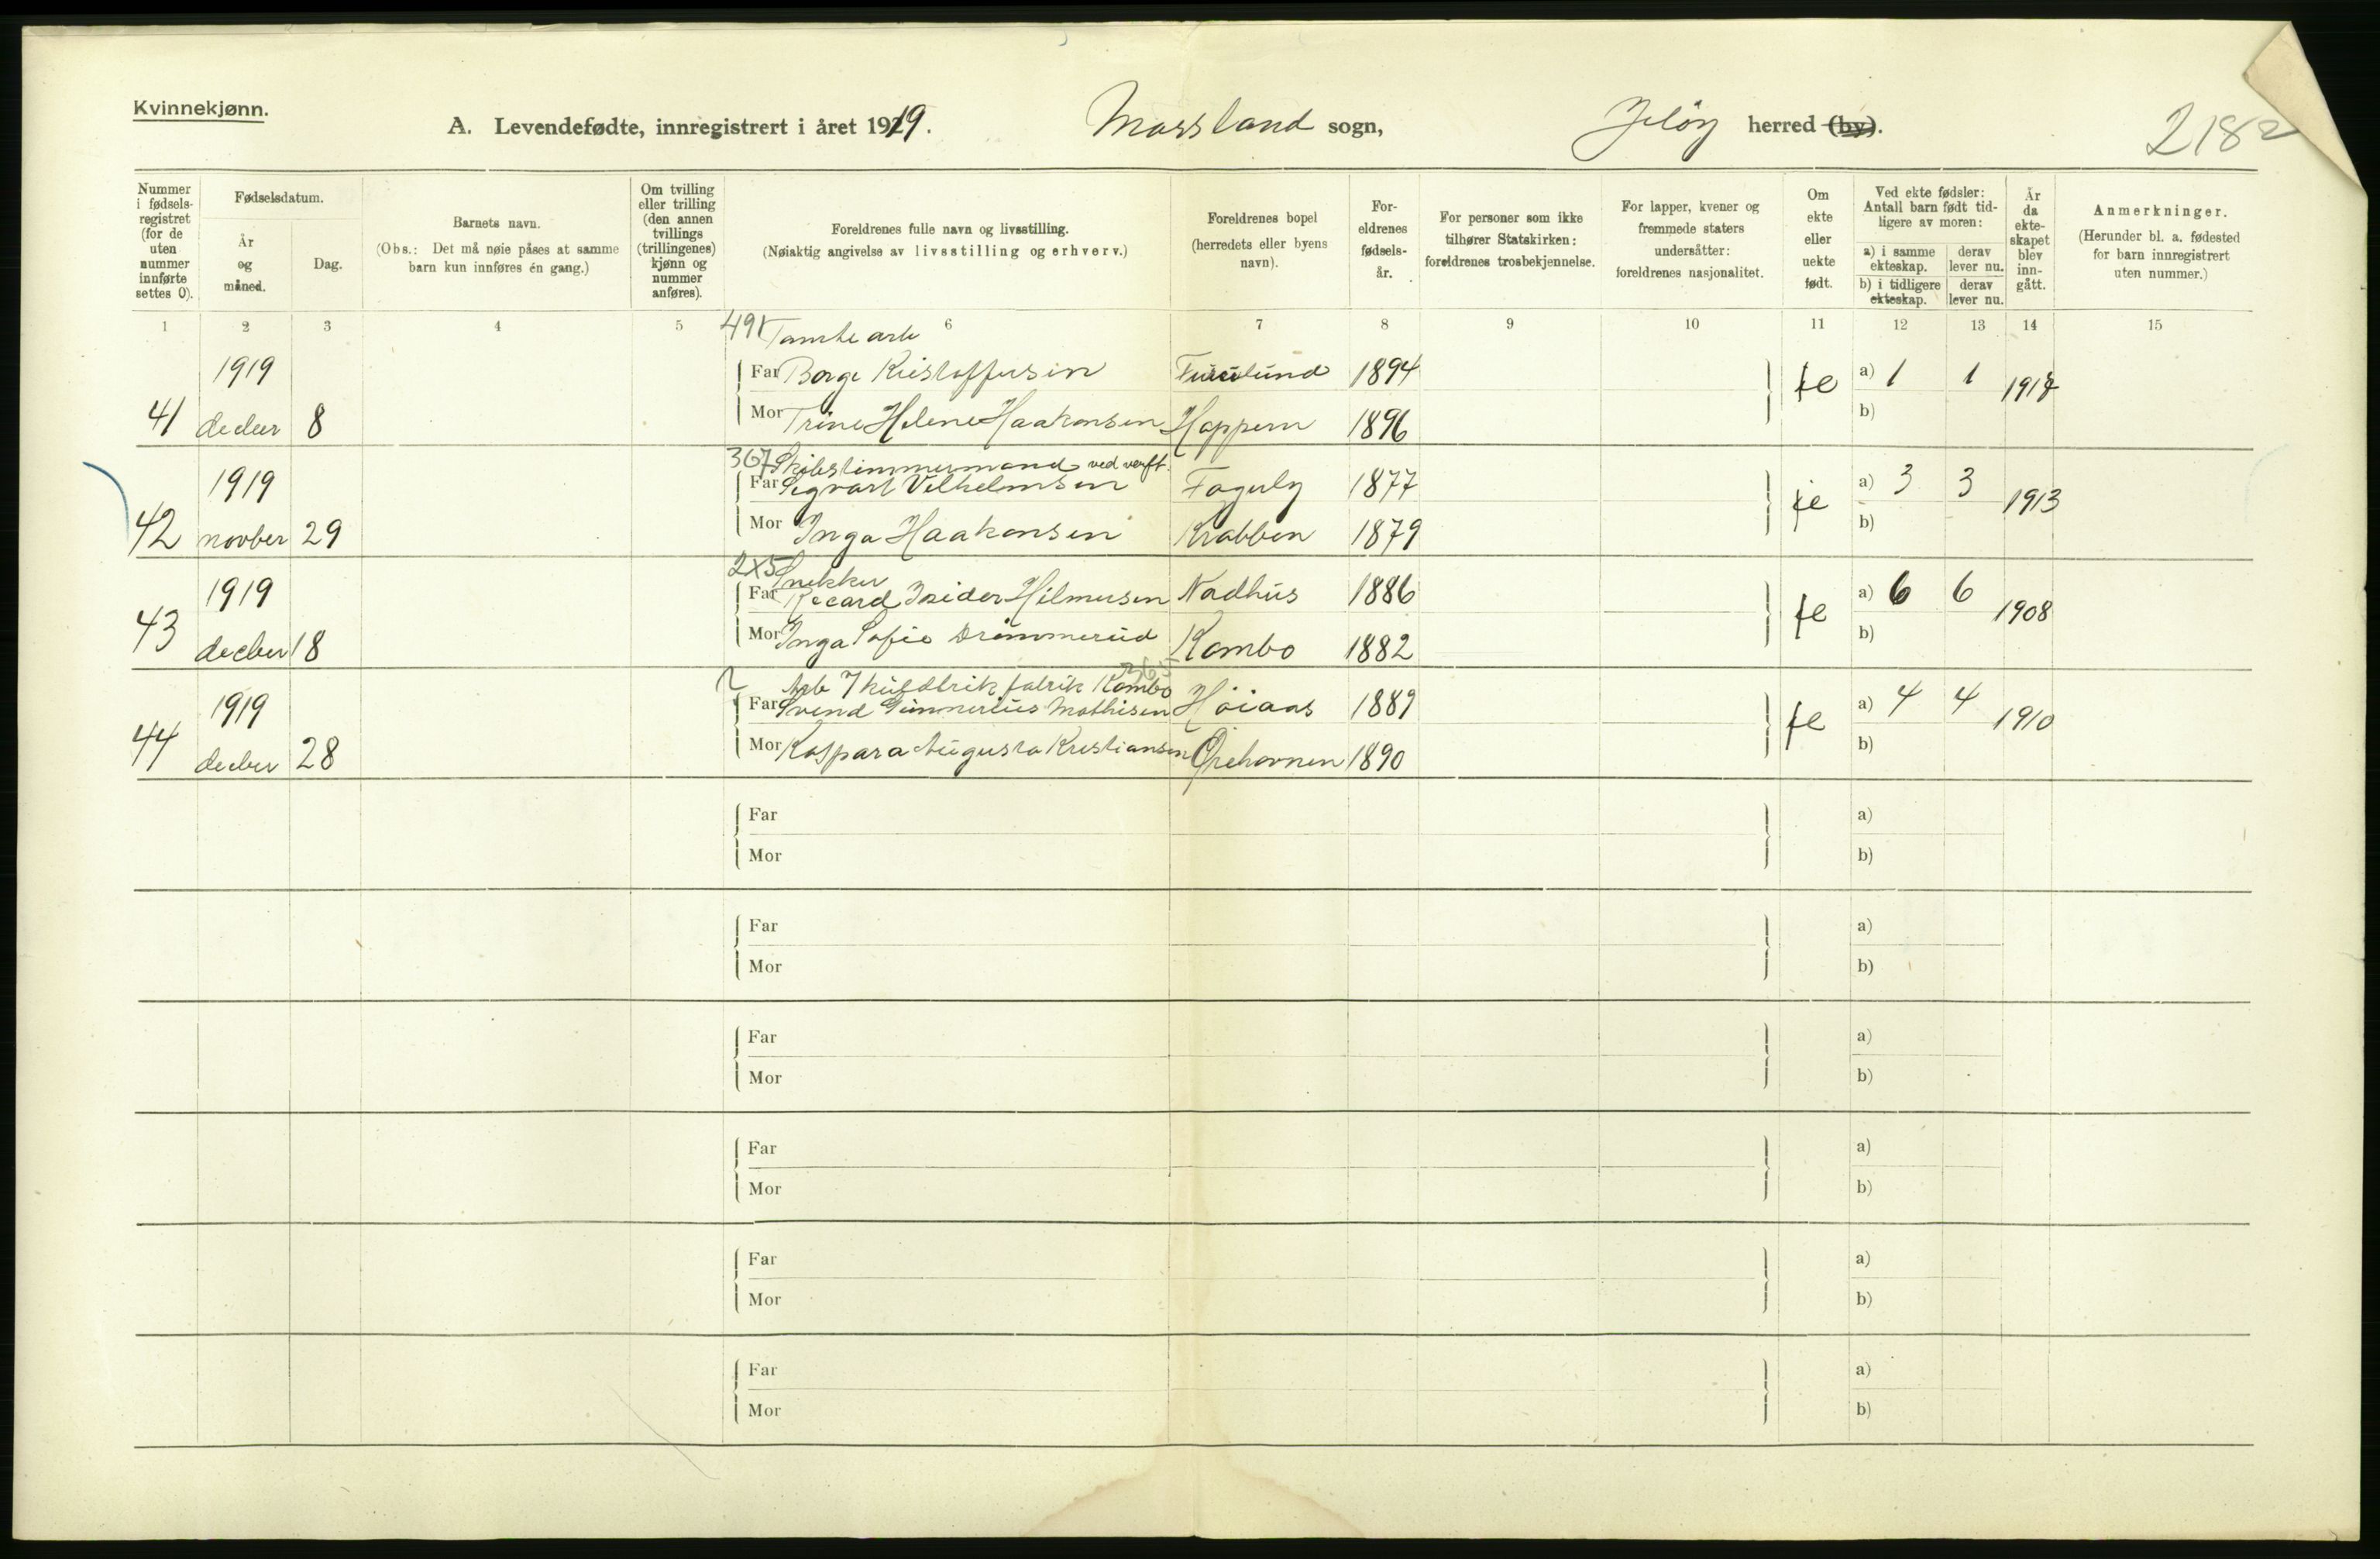 Kvinnekjønn.
A. Levendefødte, innregistrert i året 1919. Mossland sogn, Jeløy herred (by).
218
Nummer i fødselsregistret (for de uten nummer innførte settes 0).
Fødselsdatum.
År og måned.
Dag.
Barnets navn.
(Obs.: Det må nøie påses at samme barn kun innføres én gang.)
Om tvilling eller trilling (den annen tvillings (trillingenes) kjønn og nummer anføres).
Foreldrenes fulle navn og livsstilling.
(Nøiaktig angivelse av livsstilling og erhverv.)
Foreldrenes bopel (herredets eller byens navn).
Foreldrenes fødselsår.
For personer som ikke tilhører Statskirken: foreldrenes trosbekjennelse.
For lapper, kvener og fremmede staters undersåtter: foreldrenes nasjonalitet.
Om ekte eller uekte født.
Ved ekte fødsler: Antall barn født tidligere av moren:
a) i samme ekteskap.
derav lever nu.
b) i tidligere ekteskap.
derav lever nu.
År da ekteskapet blev inngått.
Anmerkninger.
(Herunder bl. a. fødested for barn innregistrert uten nummer.)
1 2 3 4 5 6 7 8 9 10 11 12 13 14 15
Tomtearb
1919 Far Borge Kristoffersen 1894 a) 1 1
41 8 Mor Trine Helene Haakonsen Hoppern 1896 b)
367 Skibstimmermand ved verft.
1919 Far Sigvart Vilhelmsen Fagerly 1877 a) 3 3 1913
42 novber 29 Mor Inga Haakonsen Krabben 1879 b)
2x5 Snekker
1919 Far Hilmersen Nadhus 1886 a) 6 6 1908
43 decber 18 Mor Inga Sofie Drømmerud Kambo 1882 b)
Arb fabrik Kambo
1919 Far Svend Mathisen Höiaas 1889 a) 4 4 1910
44 decber 28 Mor Kaspara Augusta Kristiansen Örehavnen 1890 b)
Far a)
Mor b)
Far a)
Mor b)
Far a)
Mor b)
Far a)
Mor b)
Far a)
Mor b)
Far a)
Mor b)